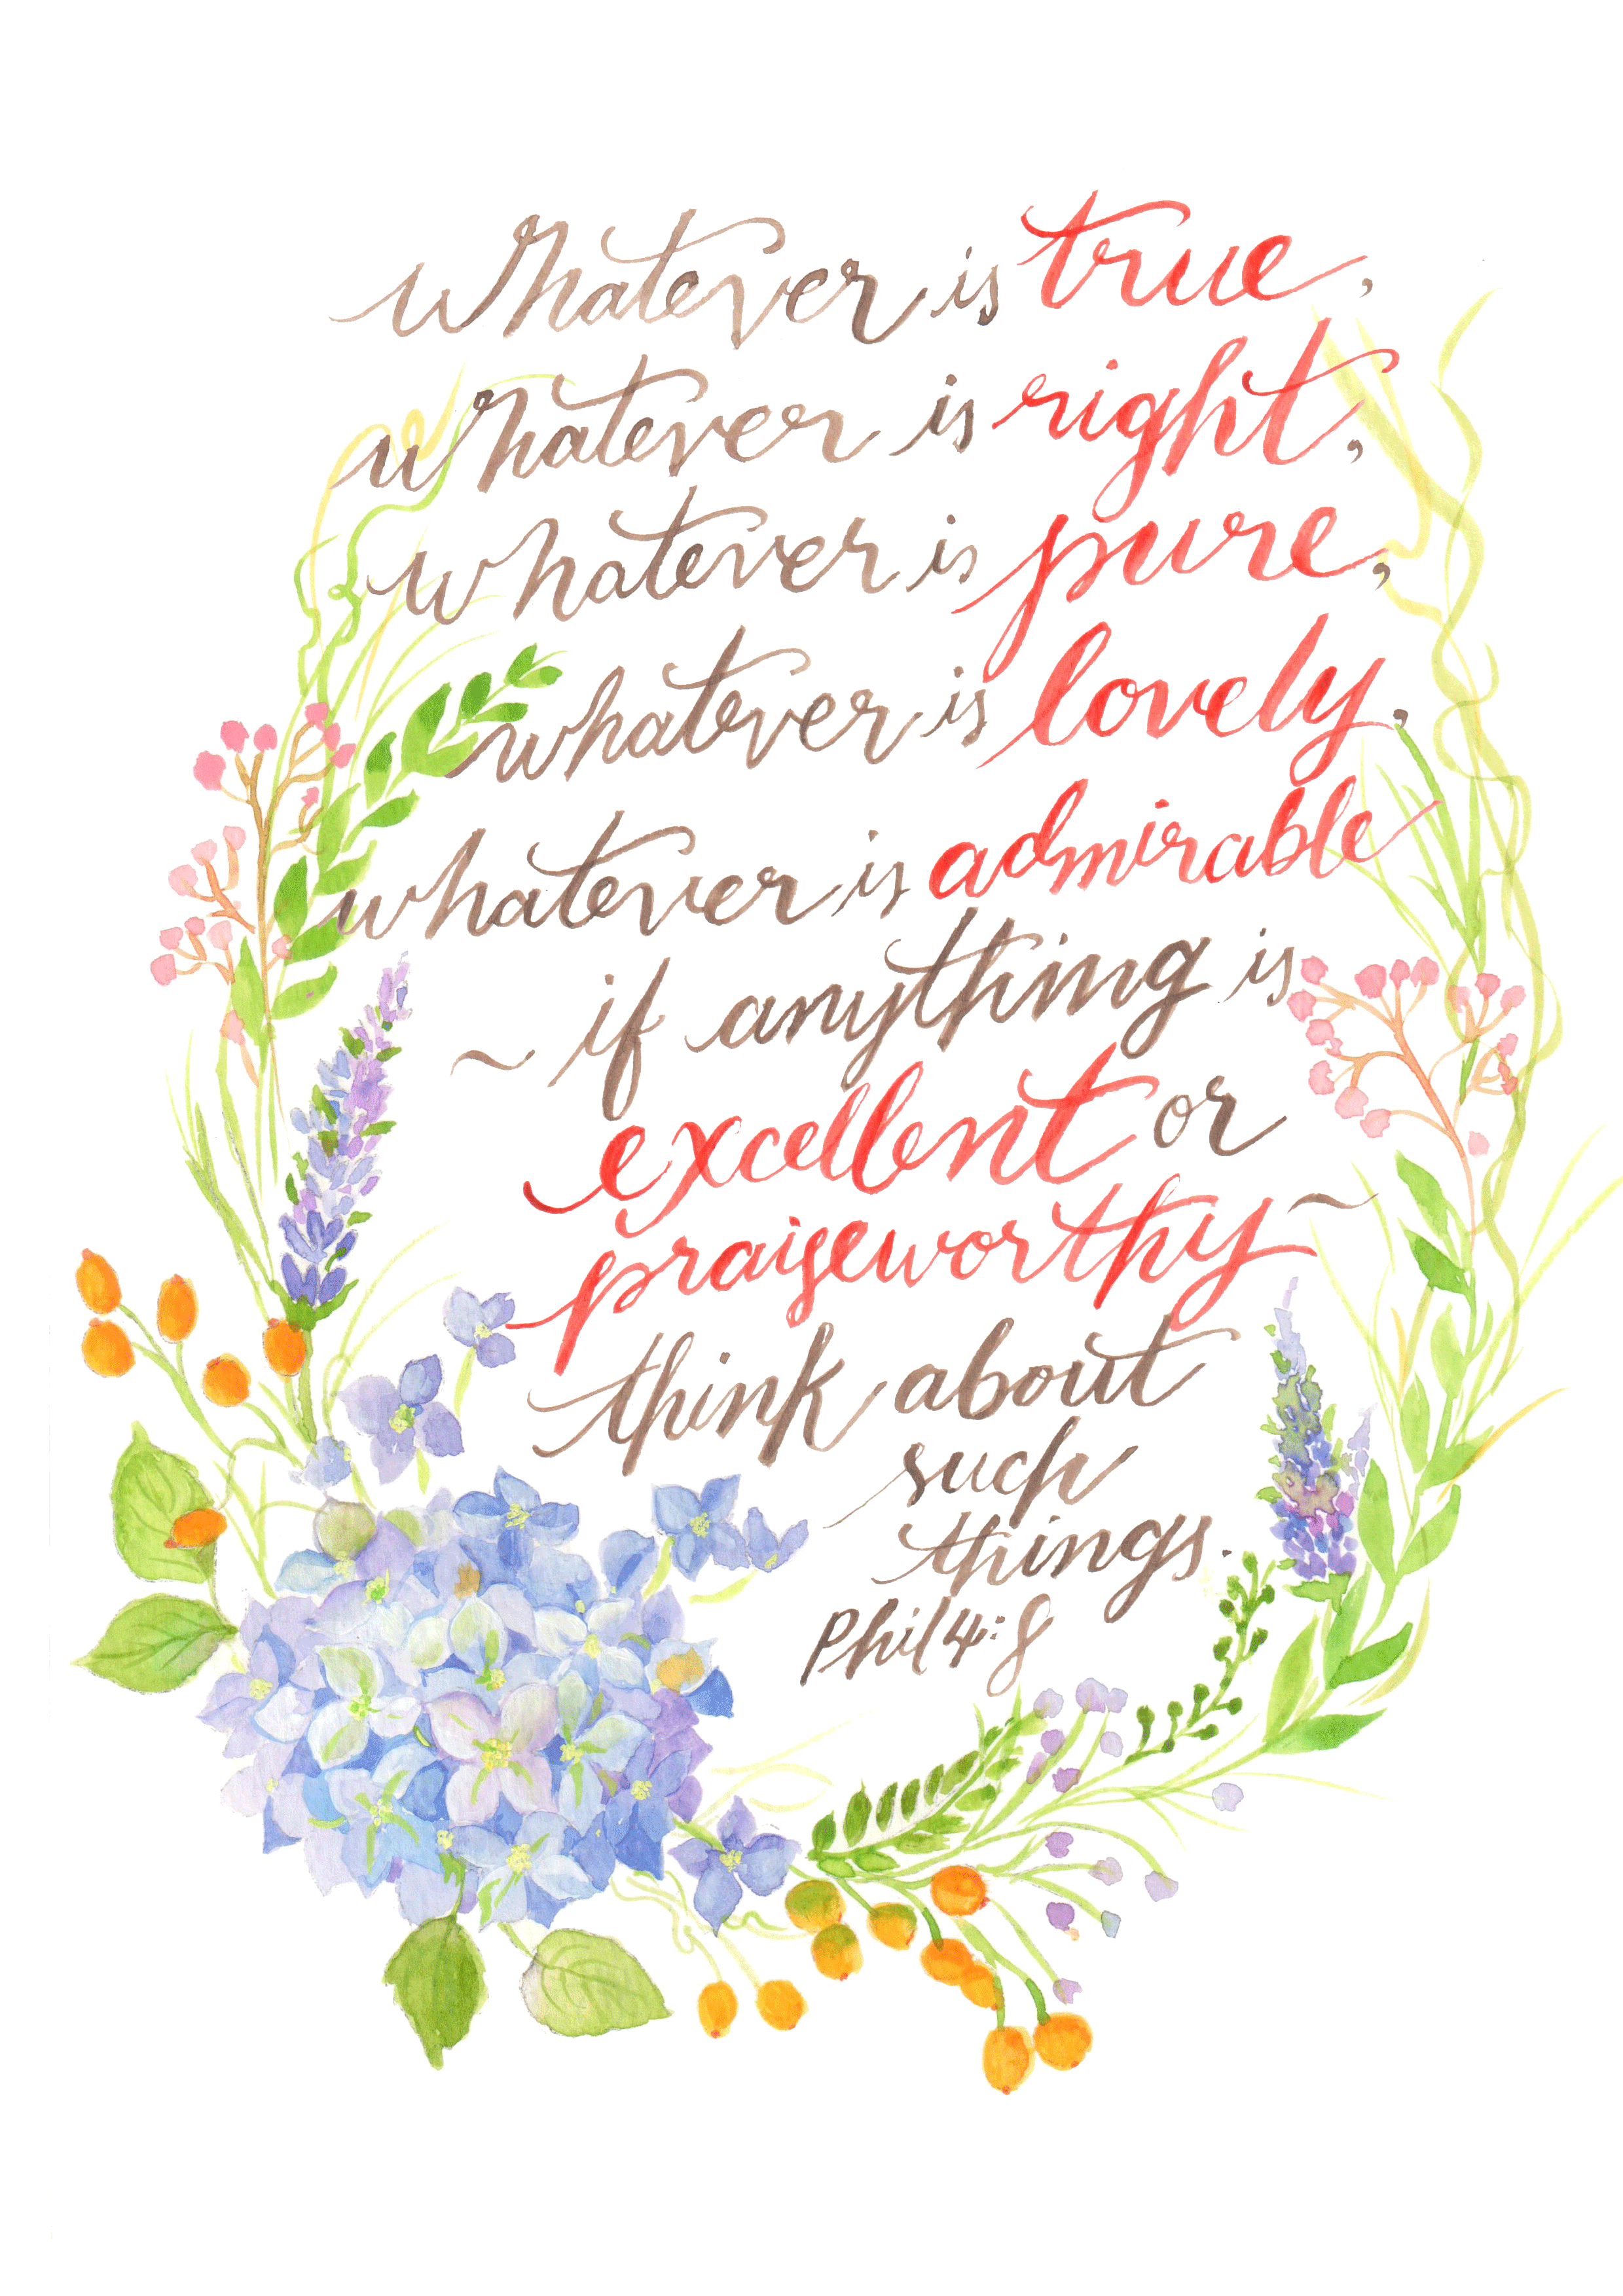 whatever is true,
whatever is right,
whatever is pure,
whatever is lovely,
whatever is admirable
~ if anything is
excellent or
praiseworthy ~
think about
such
things.
Phil 4:8